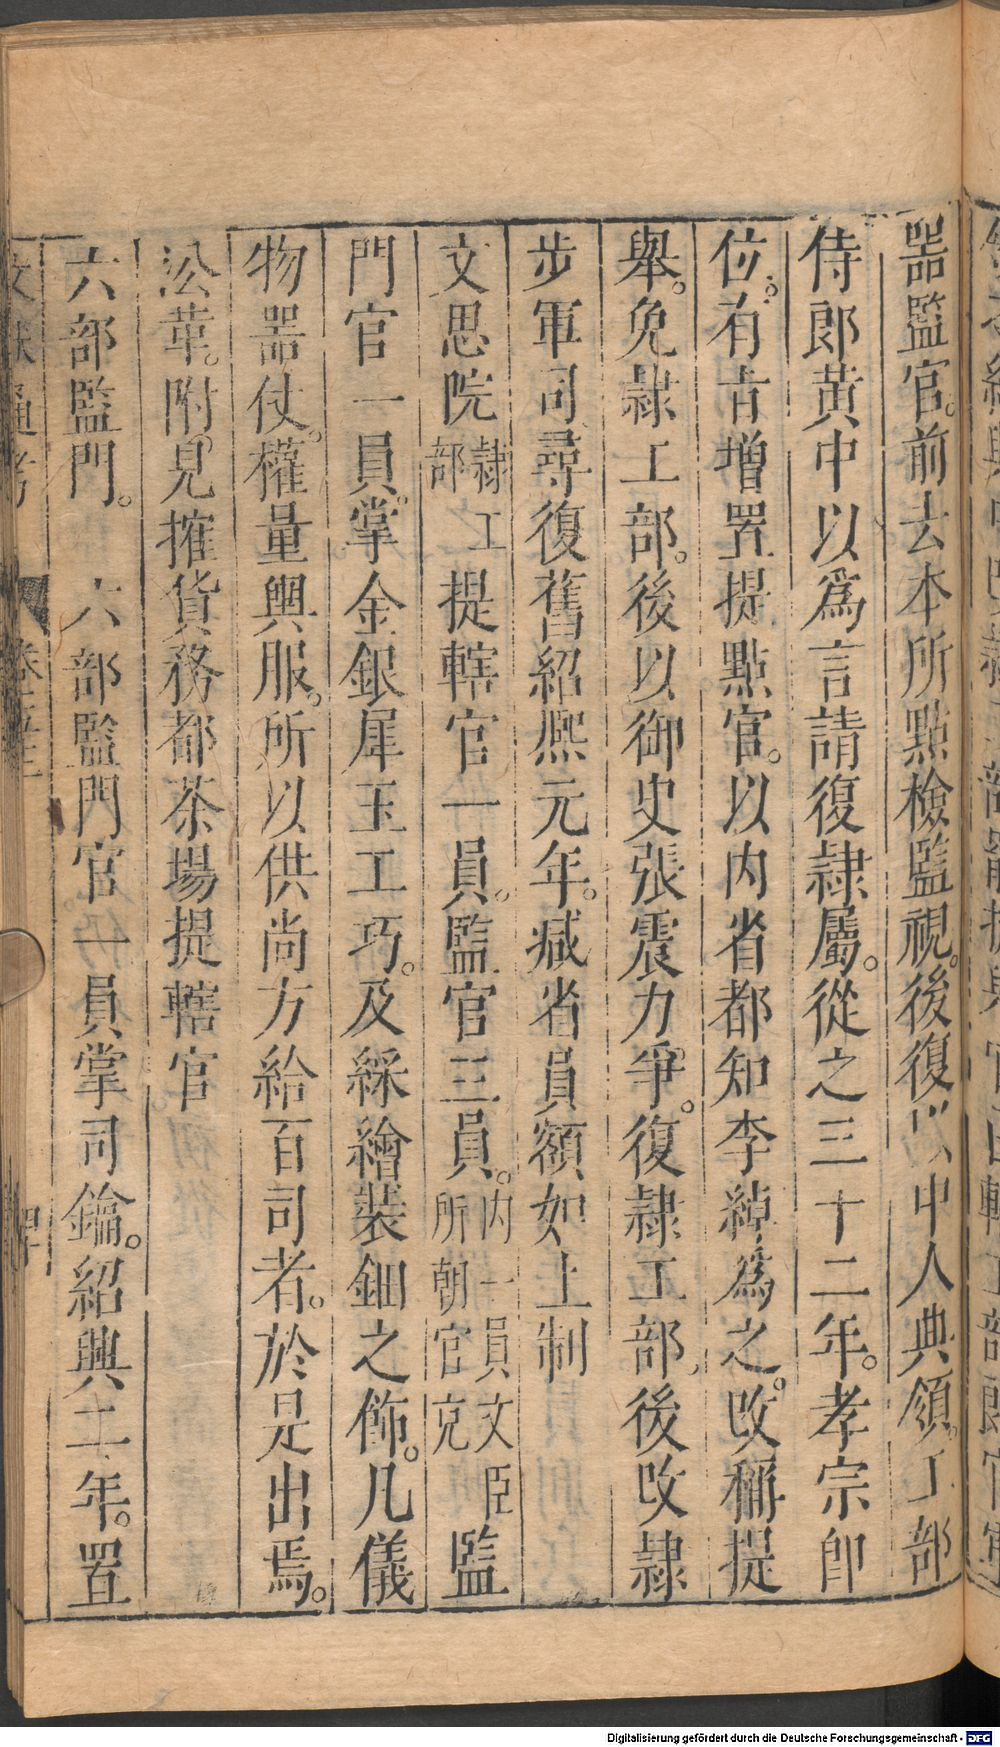 噐監官。前去本所點檢監視。後復以中人典領。工部
侍郎黄中以爲言請復隷屬。從之三十二年。孝宗卽
位。有吉增置提點官。以内省都知李綽爲之。改稱提
舉。免隷工部。後以御史張震力爭。復隷工部、後改隷
步軍司尋復舊紹熙元年。减省員額如上制
文思院隷工部之提轄官一員。監官三員。内一員文臣所朝官充監
門官一員。掌金銀犀玉工巧。及綵繪裝鈿之飾。凡儀
物噐仗。權量輿服。所以供尚方給百司者。於是出焉。
㳂革。附見搉貨務都茶場提轄官
六部監門。 六部監門官一員掌司鑰。紹興二年。置
文獻通考 卷